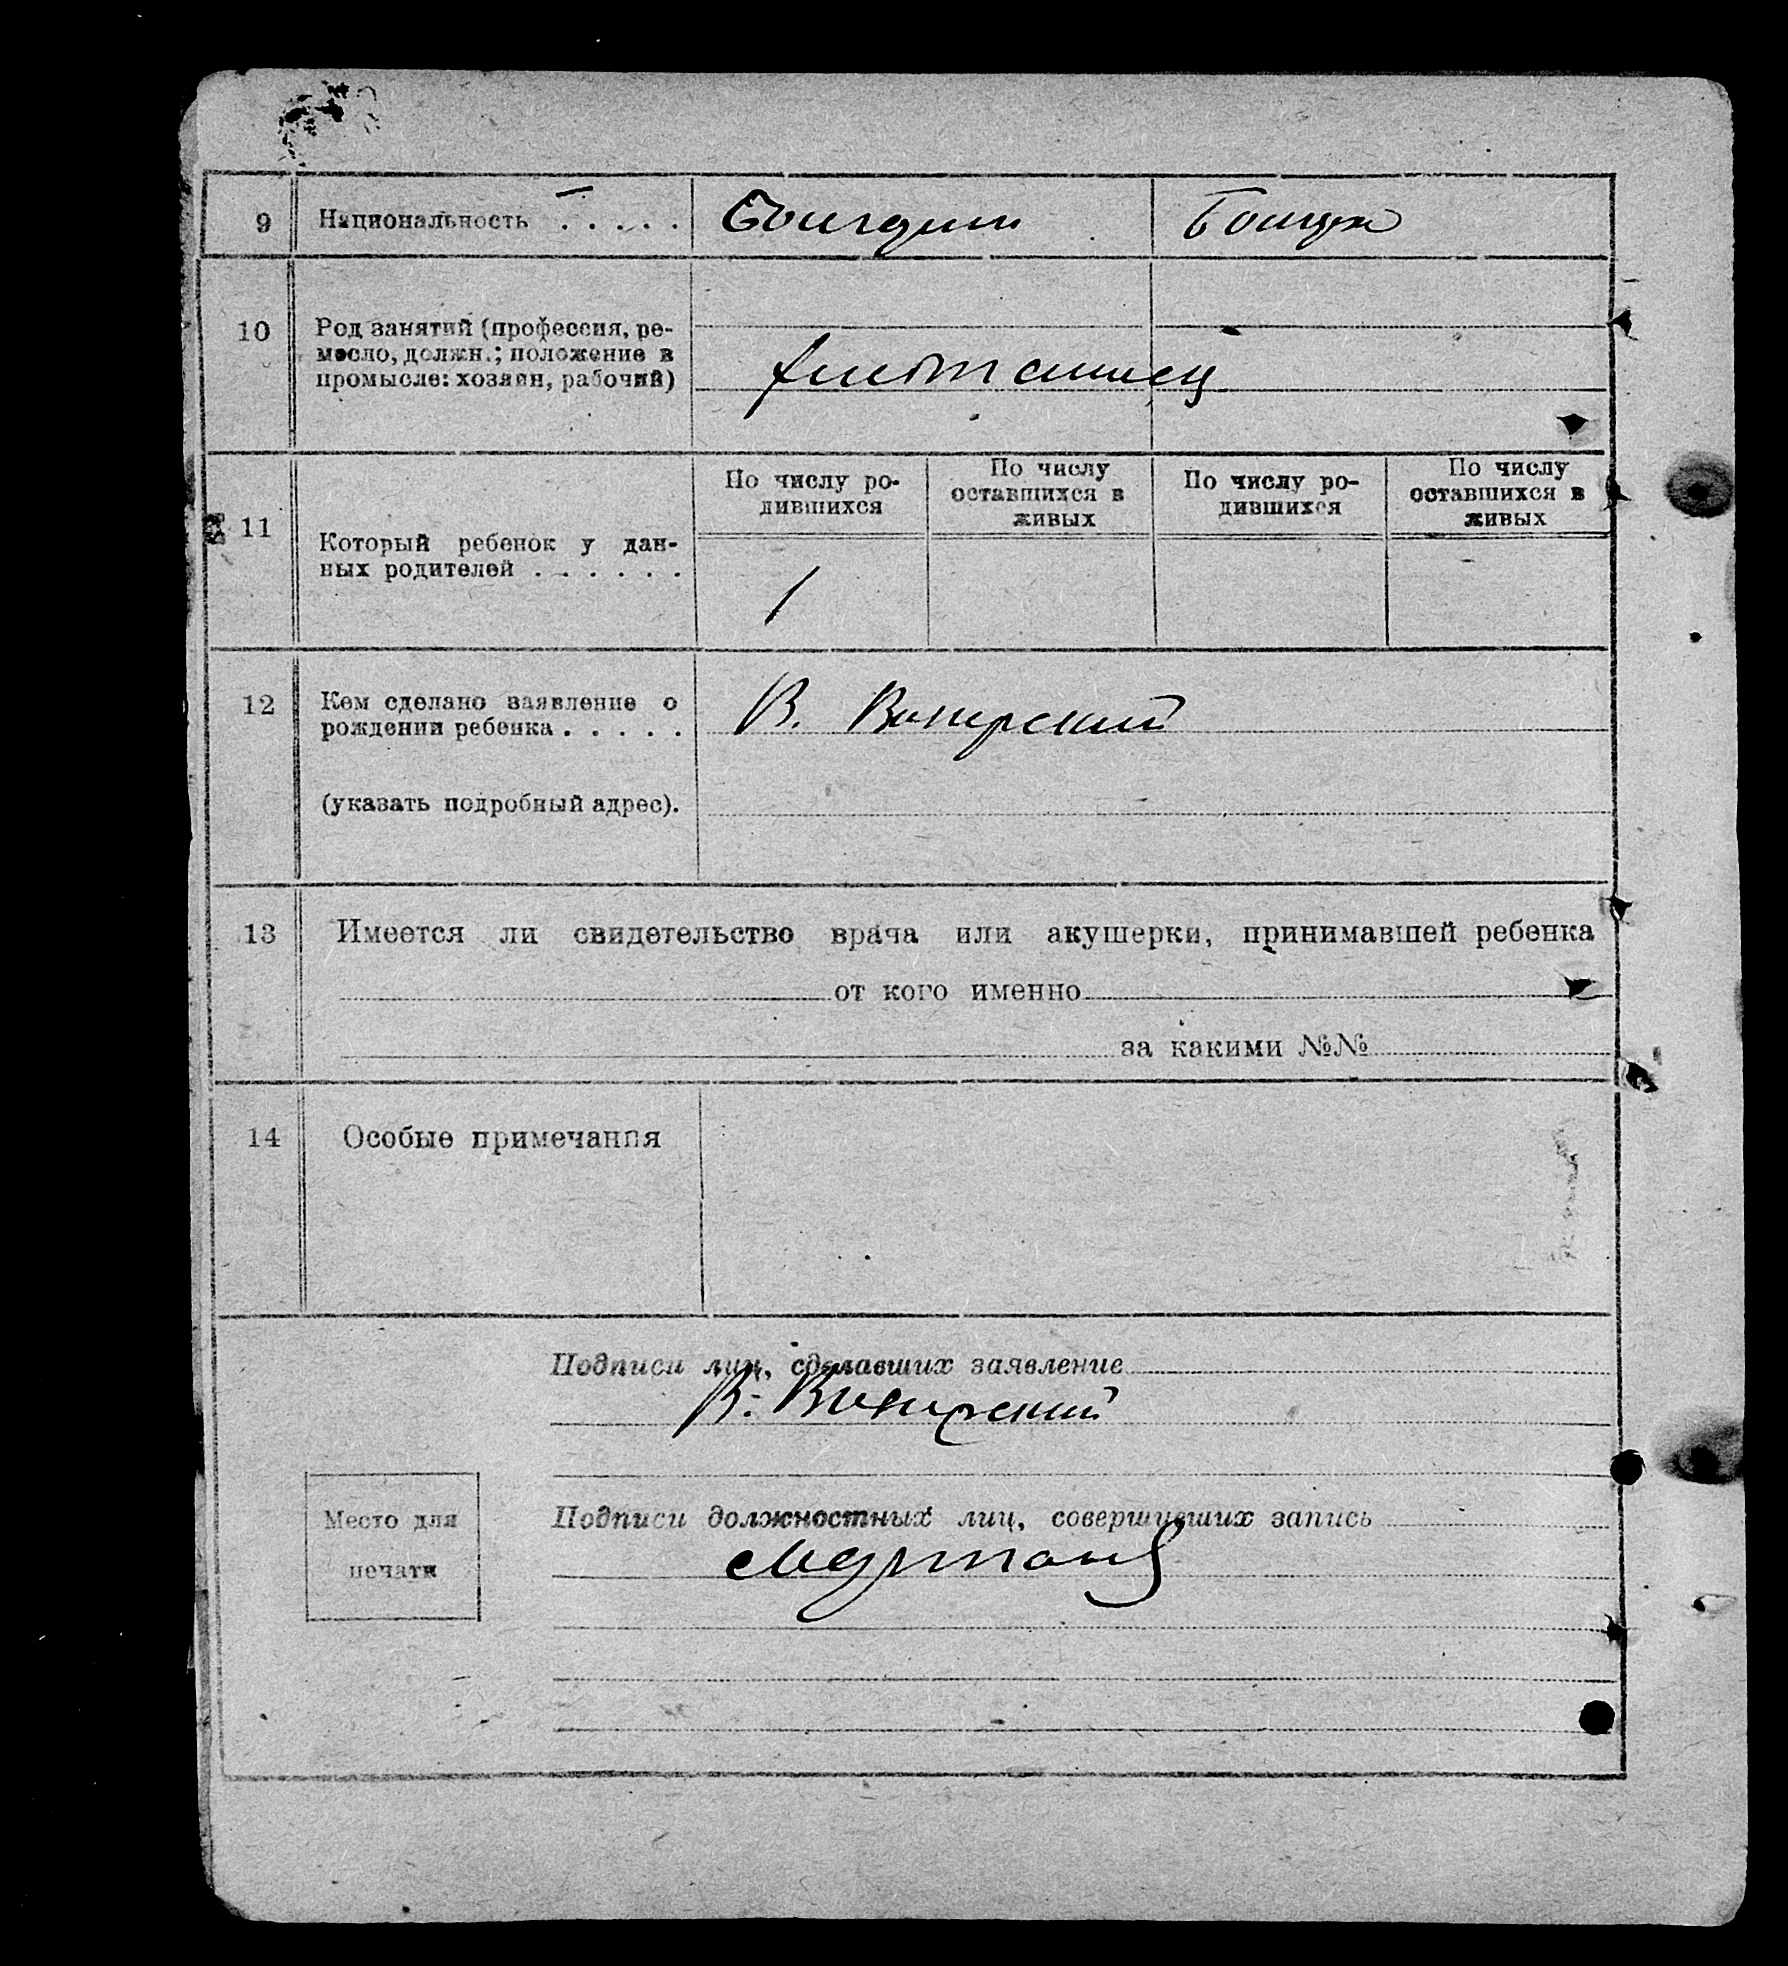 9 Национальность . . . . .
10 Род занятий (профессия, ре-
месло, должн.; положение в
промысле: хозяин, рабочий)
11 Который ребенок у дан-
ных родителей . . . . . .
По числу ро-
дившихся
По числу
оставшихся в
живых
По числу ро-
дившихся
По числу
оставшихся в
живых
1
12 Кем сделано заявление о
рождении ребенка . . . . .
(указать подробный адрес).
В.
13 Имеется ли свидетельство врача или акушерки, принимавшей ребенка
от кого именно
за какими №№
14 Особые примечания
Подписи лиц, сделавших заявление
В.
Место для
печати
Подписи должностных лиц, совершивших запись